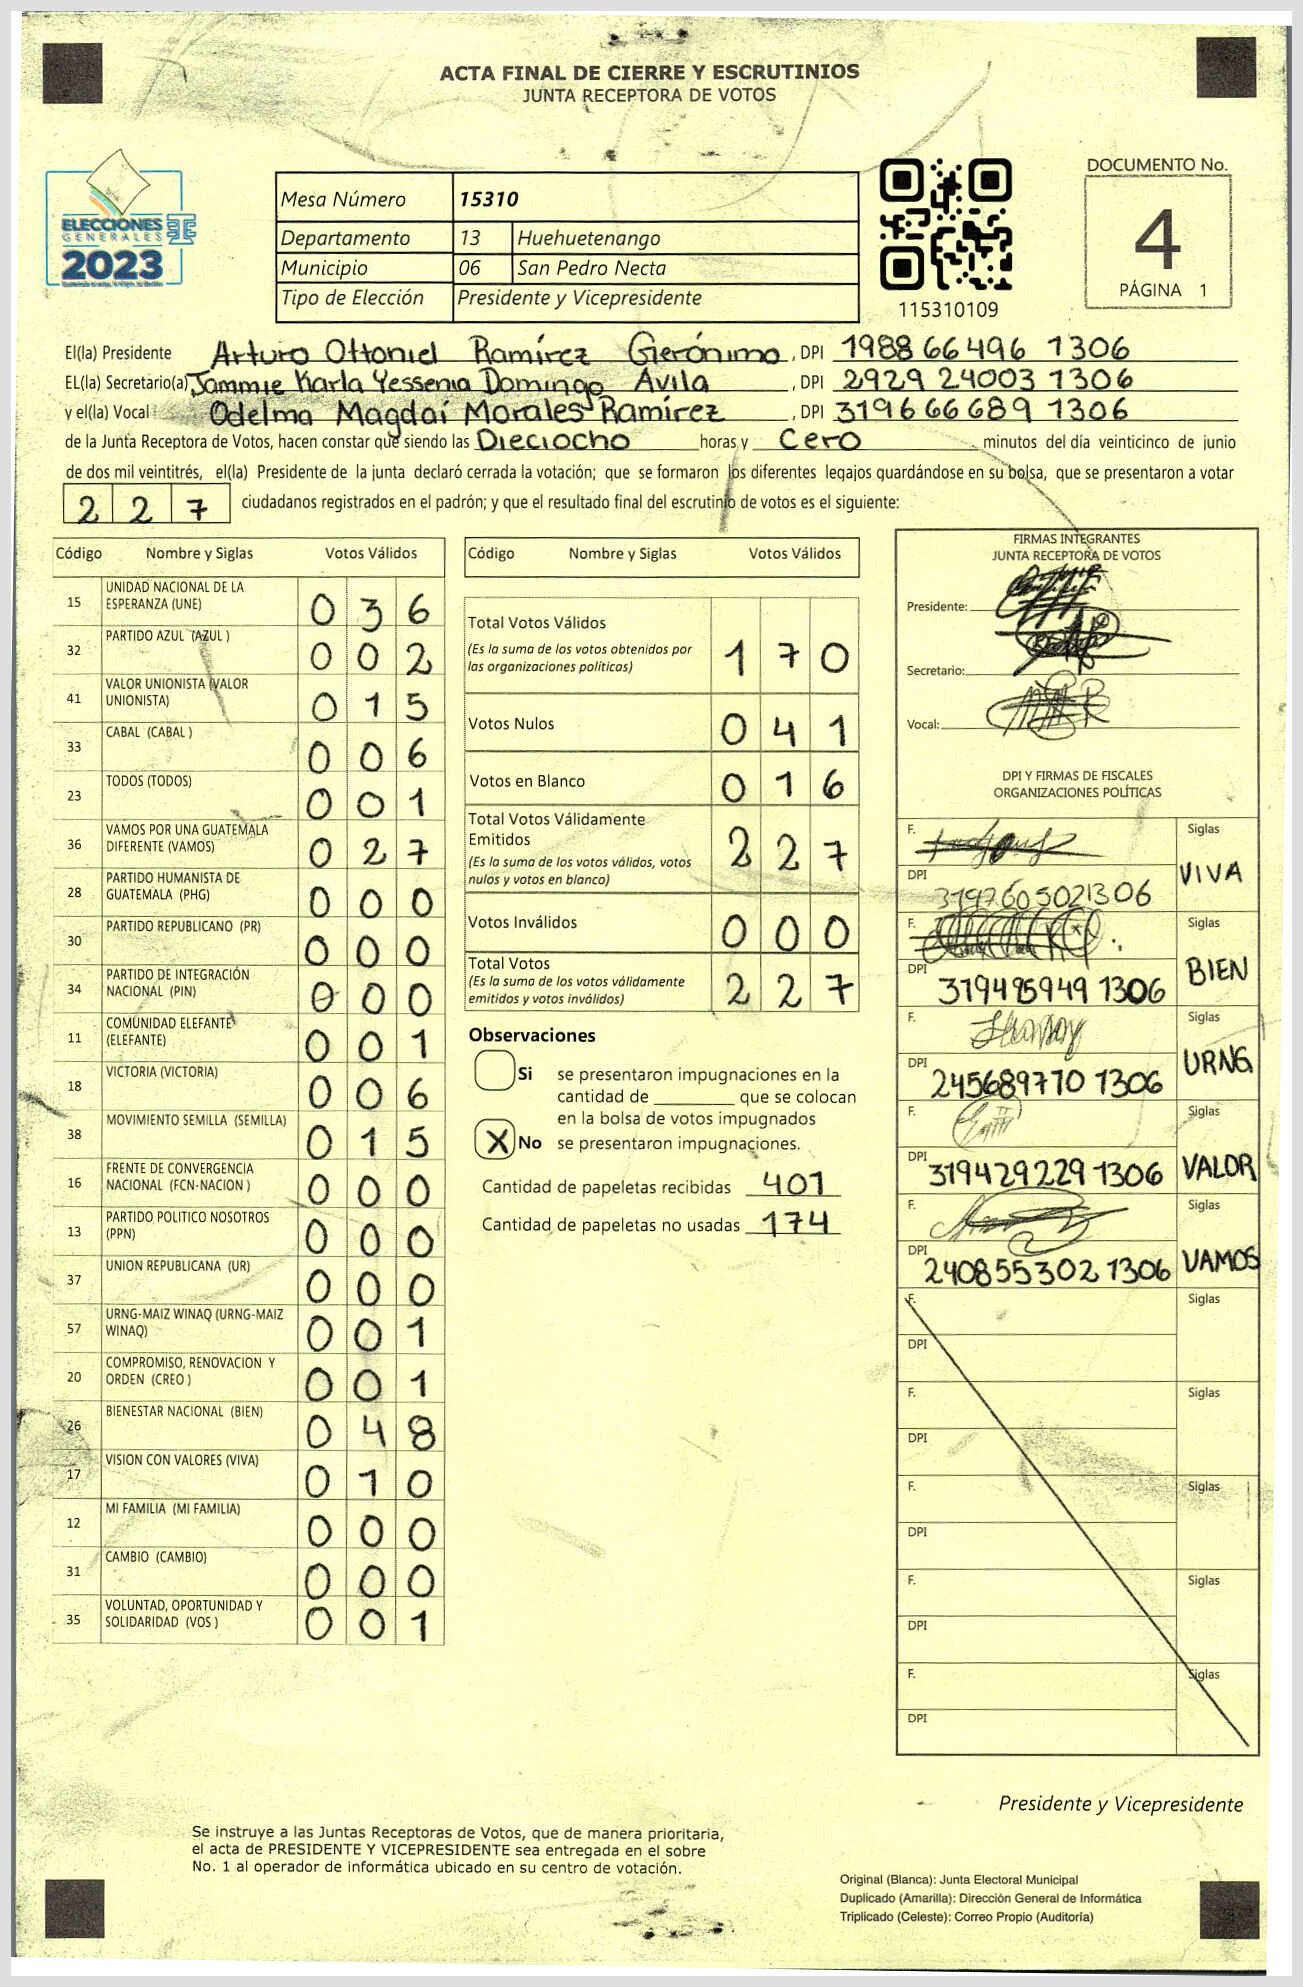 ACTA FINAL DE CIERRE Y ESCRUTINIOS
JUNTA RECEPTORA DE VOTOS
ELECCIONES
GENERALES
2023
Mesa Número 15310
Departamento 13 Huehuetenango
Municipio 06 San Pedro Necta
Tipo de Elección Presidente y Vicepresidente
115310109
DOCUMENTO No.
4
PÁGINA 1
El(la) Presidente Arturo Ottoniel Ramírez Gerónimo, DPI 1988 66496 1306
EL(la) Secretario(a) Jammie Karla Yessenia Domingo Avila, DPI 2929 24003 1306
y el(la) Vocal Odelma Magdaí Morales Ramírez, DPI 3196 66689 1306
de la Junta Receptora de Votos, hacen constar que siendo las Dieciocho horas y Cero minutos del día veinticinco de junio
de dos mil veintitrés, el(la) Presidente de la junta declaró cerrada la votación; que se formaron los diferentes legajos guardándose en su bolsa, que se presentaron a votar
227 ciudadanos registrados en el padrón; y que el resultado final del escrutinio de votos es el siguiente:
Código Nombre y Siglas Votos Válidos
15 UNIDAD NACIONAL DE LA ESPERANZA (UNE) 036
32 PARTIDO AZUL (AZUL ) 002
41 VALOR UNIONISTA (VALOR UNIONISTA) 015
33 CABAL (CABAL ) 006
23 TODOS (TODOS) 001
36 VAMOS POR UNA GUATEMALA DIFERENTE (VAMOS) 027
28 PARTIDO HUMANISTA DE GUATEMALA (PHG) 000
30 PARTIDO REPUBLICANO (PR) 000
34 PARTIDO DE INTEGRACIÓN NACIONAL (PIN) 000
11 COMUNIDAD ELEFANTE (ELEFANTE) 001
18 VICTORIA (VICTORIA) 006
38 MOVIMIENTO SEMILLA (SEMILLA) 015
16 FRENTE DE CONVERGENCIA NACIONAL (FCN-NACION ) 000
13 PARTIDO POLITICO NOSOTROS (PPN) 000
37 UNION REPUBLICANA (UR) 000
57 URNG-MAIZ WINAQ (URNG-MAIZ WINAQ) 001
20 COMPROMISO, RENOVACION Y ORDEN (CREO ) 001
26 BIENESTAR NACIONAL (BIEN) 048
17 VISION CON VALORES (VIVA) 010
12 MI FAMILIA (MI FAMILIA) 000
31 CAMBIO (CAMBIO) 000
35 VOLUNTAD, OPORTUNIDAD Y SOLIDARIDAD (VOS ) 001
Código Nombre y Siglas Votos Válidos
Total Votos Válidos 170
(Es la suma de los votos obtenidos por
las organizaciones políticas)
Votos Nulos 041
Votos en Blanco 016
Total Votos Válidamente
Emitidos 227
(Es la suma de los votos válidos, votos
nulos y votos en blanco)
Votos Inválidos 000
Total Votos 227
(Es la suma de los votos válidamente
emitidos y votos inválidos)
Observaciones
Si se presentaron impugnaciones en la
cantidad de ________ que se colocan
en la bolsa de votos impugnados
X No se presentaron impugnaciones.
Cantidad de papeletas recibidas 401
Cantidad de papeletas no usadas 174
FIRMAS INTEGRANTES
JUNTA RECEPTORA DE VOTOS
Presidente:
Secretario:
Vocal:
DPI Y FIRMAS DE FISCALES
ORGANIZACIONES POLÍTICAS
F. Siglas
DPI 3197605021306 VIVA
F. Siglas
DPI 319495949 1306 BIEN
F. Siglas
DPI 245689770 1306 URNG
F. Siglas
DPI 319429229 1306 VALOR
F. Siglas
DPI 240855302 1306 VAMOS
F. Siglas
DPI
F. Siglas
DPI
F. Siglas
DPI
F. Siglas
DPI
F. Siglas
DPI
Presidente y Vicepresidente
Se instruye a las Juntas Receptoras de Votos, que de manera prioritaria,
el acta de PRESIDENTE Y VICEPRESIDENTE sea entregada en el sobre
No. 1 al operador de informática ubicado en su centro de votación.
Original (Blanca): Junta Electoral Municipal
Duplicado (Amarilla): Dirección General de Informática
Triplicado (Celeste): Correo Propio (Auditoría)